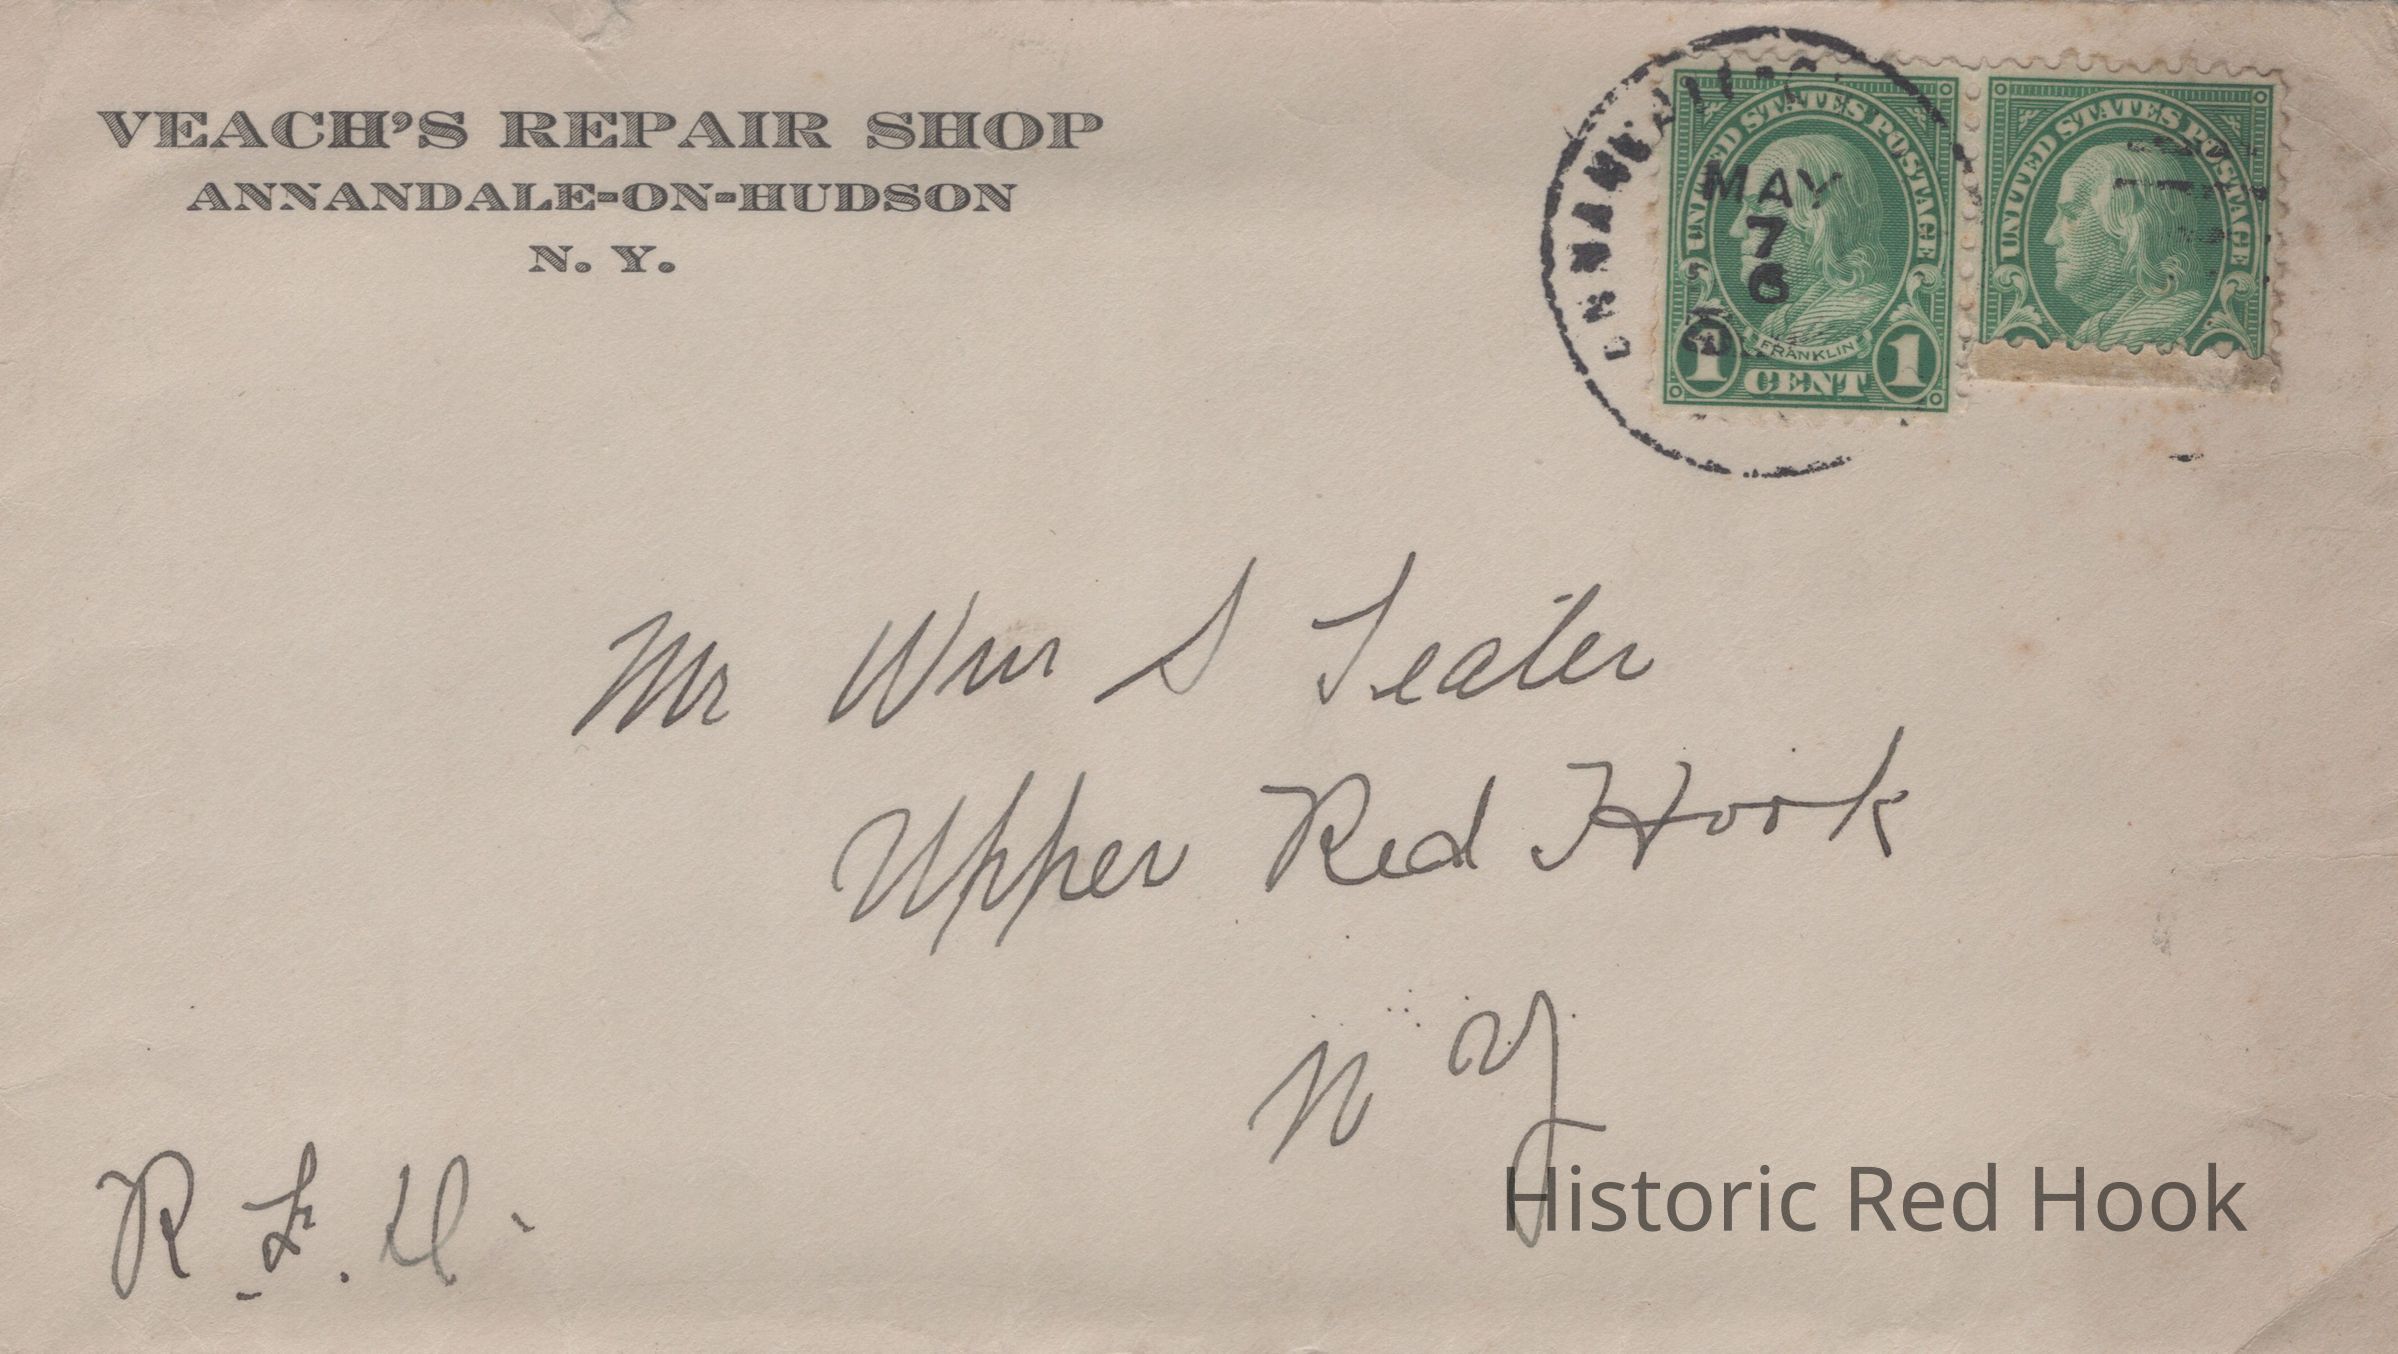 VEACH'S REPAIR SHOP
ANNANDALE-ON-HUDSON
N. Y.
UNITED STATES POSTAGE
MAY
7
6
FRANKLIN
1 CENT 1
UNITED STATES POSTAGE
Mr Wm S Teater
Upper Red Hook
N Y
R. F. D.
Historic Red Hook